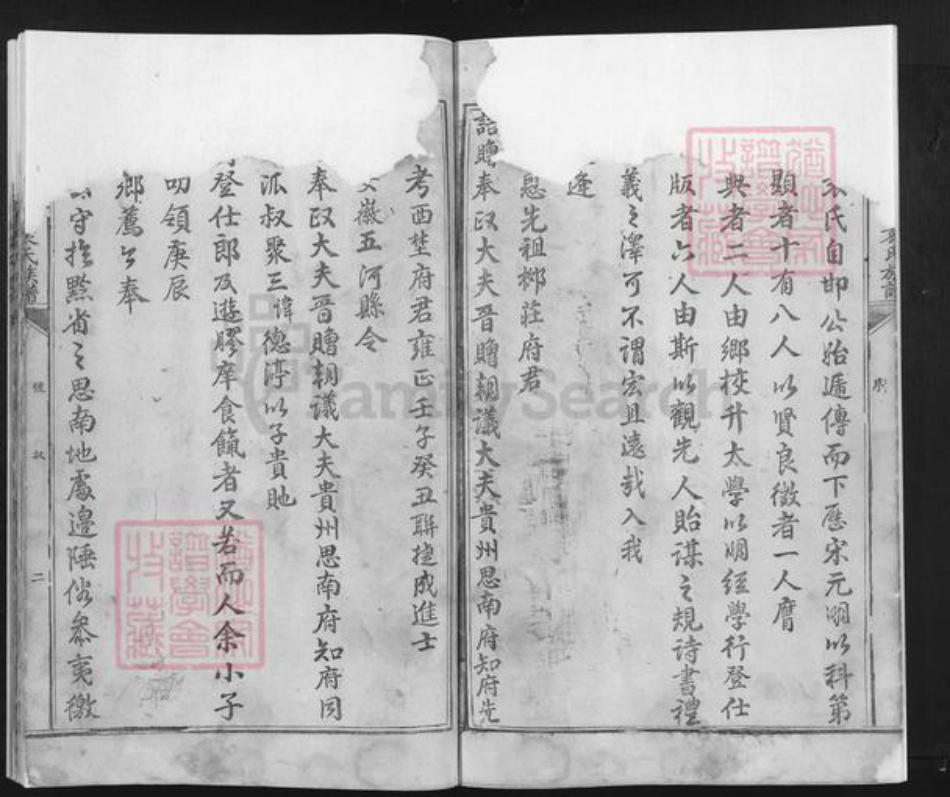 氏自卭公始遞傳而下歷宋元明以科第
顯者十有八人以賢良徵者一人膺
典者二人由鄉校升太學以明經學行登仕
版者六人由斯以觀先人貽謀之規詩書禮
義之澤可不謂宏且遠哉入我
逢
恩先祖鄉莊府君
誥贈奉政大夫晋贈朝議大夫貴州思南府知府先
考西埜府君雍正壬子癸丑聯捷成進士
徽五河縣令
奉政大夫晋贈朝議大夫貴州思南府知府同
派叔聚三諱德渟以子貴貤
登仕郎及遊膠庠食餼者又若而人余小子
叨領庚辰
鄉薦公奉
守撫黔省之思南地處邊陲俗參夷徼
猶他家譜學會收藏
猶他家譜學會收藏
FamilySearch
二